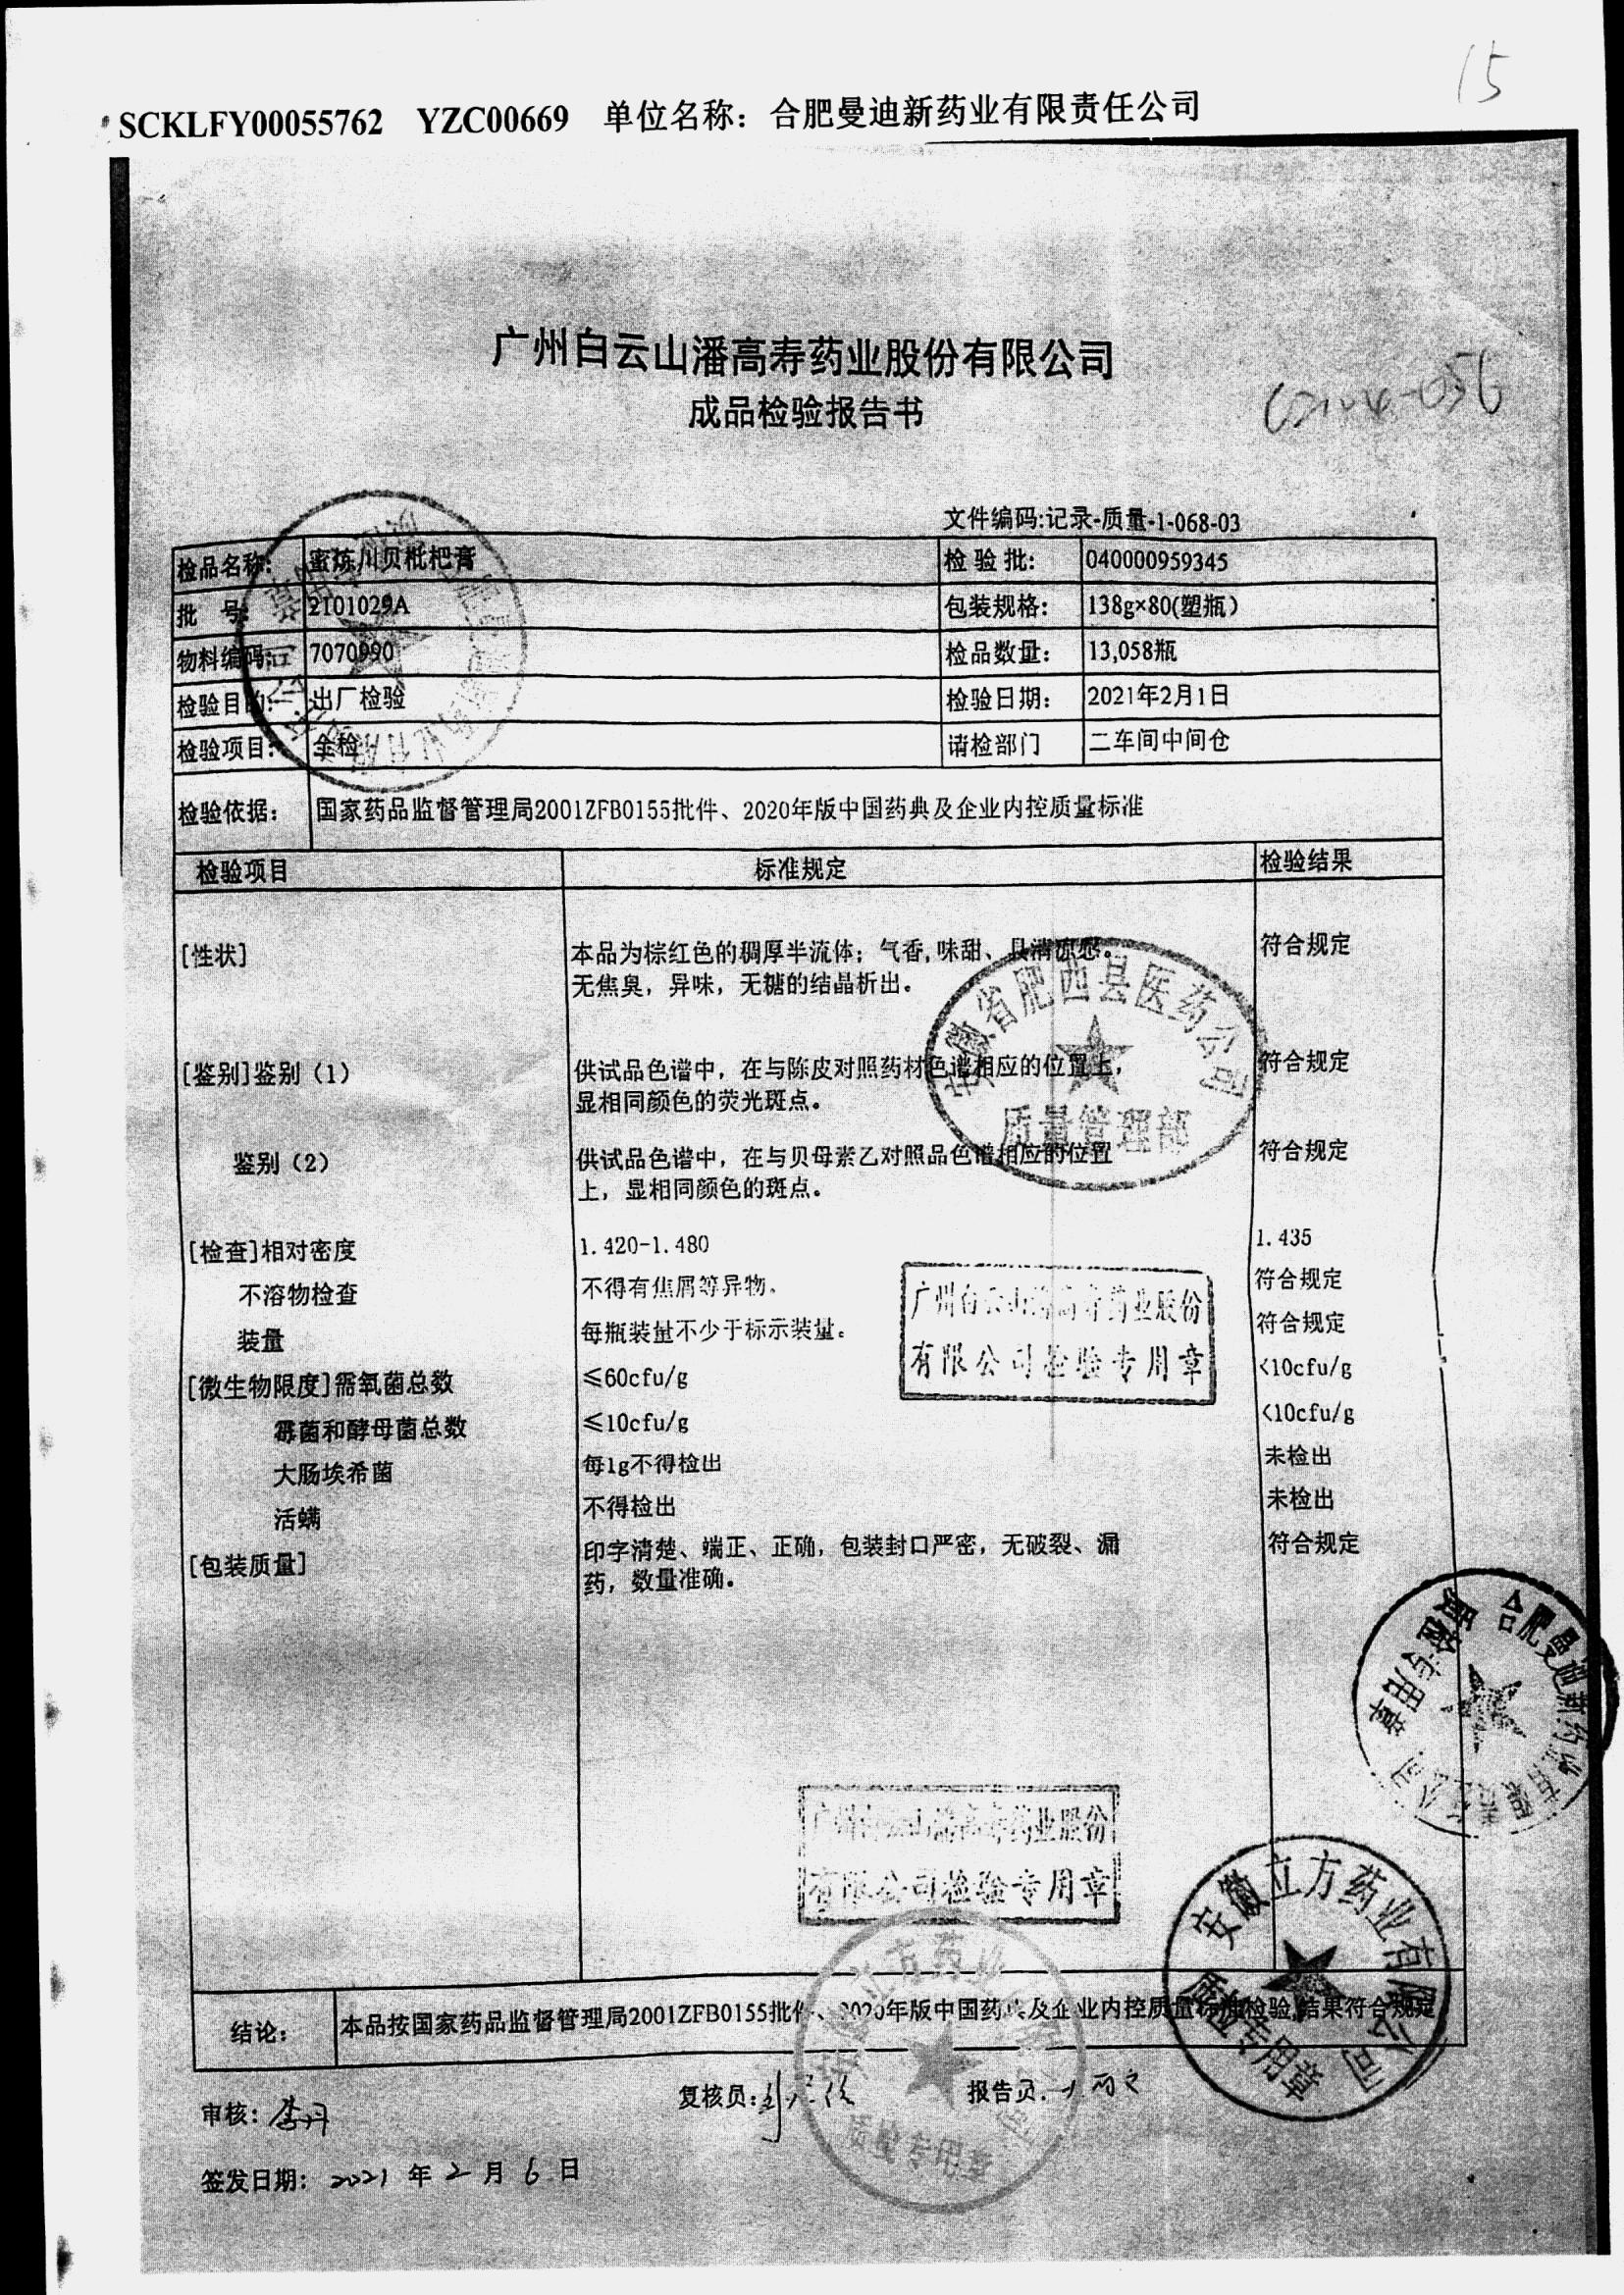 15
SCKLFY00055762 YZC00669 单位名称：合肥曼迪新药业有限责任公司
广州白云山潘高寿药业股份有限公司
成品检验报告书
文件编码:记录-质量-1-068-03
检品名称: 蜜炼川贝枇杷膏 检 验 批: 040000959345
批 号: 2101029A 包装规格: 138g×80(塑瓶)
物料编码: 7070990 检品数量: 13,058瓶
检验目的: 出厂检验 检验日期: 2021年2月1日
检验项目: 全检 请检部门 二车间中间仓
检验依据: 国家药品监督管理局2001ZFB0155批件、2020年版中国药典及企业内控质量标准
检验项目 标准规定 检验结果
[性状] 本品为棕红色的稠厚半流体；气香,味甜、具清凉感。 符合规定
无焦臭，异味，无糖的结晶析出。
[鉴别]鉴别（1） 供试品色谱中，在与陈皮对照药材色谱相应的位置上， 符合规定
显相同颜色的荧光斑点。
鉴别（2） 供试品色谱中，在与贝母素乙对照品色谱相应的位置 符合规定
上，显相同颜色的斑点。
[检查]相对密度 1.420-1.480 1.435
不溶物检查 不得有焦屑等异物。 符合规定
装量 每瓶装量不少于标示装量。 符合规定
[微生物限度]需氧菌总数 ≤60cfu/g <10cfu/g
霉菌和酵母菌总数 ≤10cfu/g <10cfu/g
大肠埃希菌 每1g不得检出 未检出
活螨 不得检出 未检出
[包装质量] 印字清楚、端正、正确，包装封口严密，无破裂、漏 符合规定
药，数量准确。
安徽省肥西县医药公司
质量管理部
广州白云山潘高寿药业股份
有限公司检验专用章
合肥曼迪新药业有限责任公司
质检专用章
广州白云山潘高寿药业股份
有限公司检验专用章
安徽立方药业有限公司
质检专用章
结论: 本品按国家药品监督管理局2001ZFB0155批件、2020年版中国药典及企业内控质量标准检验,结果符合规定
审核: 复核员: 报告员:
签发日期: 2021 年 2 月 6 日
安徽立方药业
质量专用章